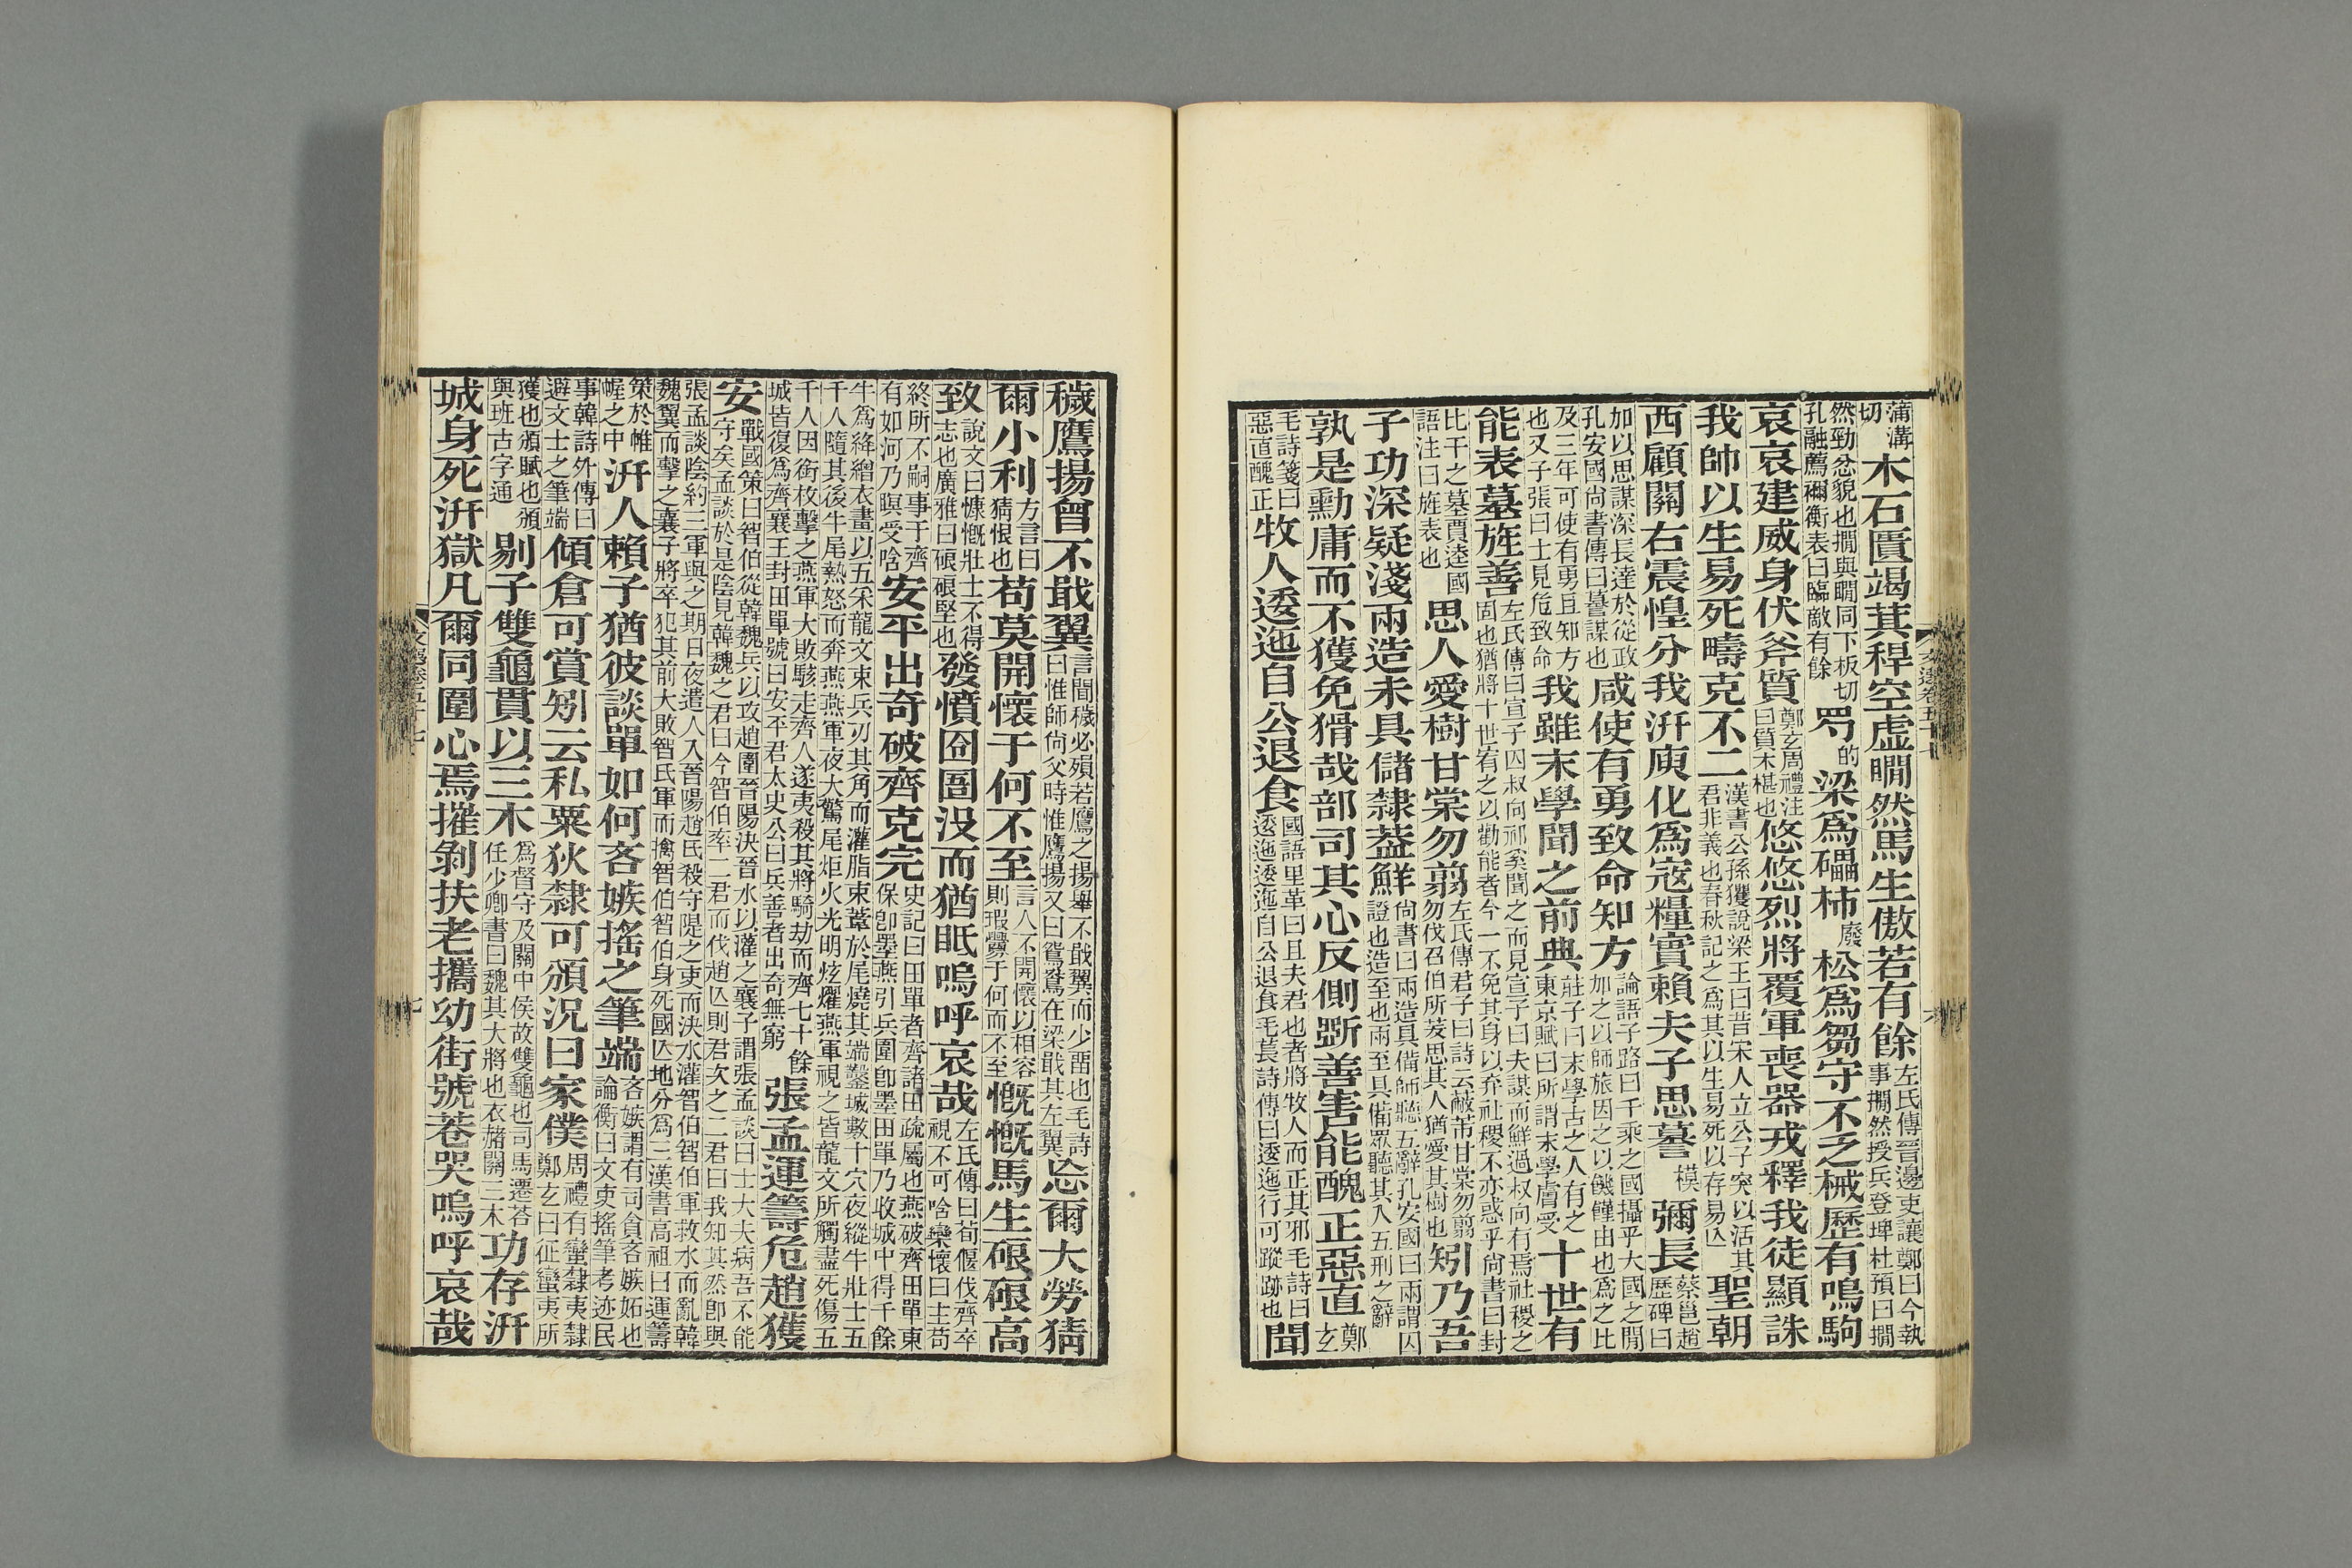 蒲溝切木石匱竭萁稈空虛瞷然馬生傲若有餘左氏傳晉邊吏讓鄭曰今執事撊然授兵登埤杜預曰撊
然勁忿貌也撊與瞷同下板切孔融薦禰衡表曰臨敵有餘罖的梁爲礌柿廢松爲芻守不乏械歷有鳴駒
哀哀建威身伏斧質鄭玄周禮注曰質木椹也悠悠烈將覆軍喪器戎釋我徒顯誅
我帥以生易死疇克不二漢書公孫玃說梁王曰昔宋人立公子突以活其君非義也春秋記之爲其以生易死以存易亾聖朝
西顧關右震惶分我汧庾化爲寇糧實賴夫子思謩模彌長蔡邕趙歷碑曰
加以思謀深長達於從政孔安國尚書傳曰謩謀也咸使有勇致命知方論語子路曰千乘之國攝乎大國之閒加之以師旅因之以饑饉由也爲之比
及三年可使有勇且知方也又子張曰士見危致命我雖末學聞之前典莊子曰末學古之人有之東京賦曰所謂末學膚受十世有
能表墓旌善左氏傳曰宣子囚叔向祁奚聞之而見宣子曰夫謀而鮮過叔向有焉社稷之固也猶將十世宥之以勸能者今一不免其身以弃社稷不亦惑乎尚書曰封
比干之墓賈逵國語注曰旌表也思人愛樹甘棠勿翦左氏傳君子曰詩云蔽芾甘棠勿翦勿伐召伯所茇思其人猶愛其樹也矧乃吾
子功深疑淺兩造未具儲隸葢鮮尚書曰兩造具備師聽五辭孔安國曰兩謂囚證也造至也兩至具備眾聽其入五刑之辭
孰是勳庸而不獲免猾哉部司其心反側斲善害能醜正惡直鄭玄
毛詩箋曰惡直醜正牧人逶迤自公退食國語里革曰且夫君也者將牧人而正其邪毛詩曰逶迤逶迤自公退食毛萇詩傳曰逶迤行可蹤跡也聞
穢鷹揚曾不戢翼言聞穢必殞若鷹之揚舉不戢翼而少畱也毛詩曰惟師尚父時惟鷹揚又曰鴛鴦在梁戢其左翼忘爾大勞猜
爾小利方言曰猜恨也苟莫開懷于何不至言人不開懷以相容則瑕釁于何而不至慨慨馬生硍硍高
致說文曰慷慨壯士不得志也廣雅曰硍硍堅也發憤囹圄沒而猶眡嗚呼哀哉左氏傳曰荀偃伐齊卒視不可唅欒懷曰主苟
終所不嗣事于齊有如河乃瞑受唅安平出奇破齊克完史記曰田單者齊諸田疏屬也燕破齊田單東保卽墨燕引兵圍卽墨田單乃收城中得千餘
牛爲絳繒衣畫以五采龍文束兵刃其角而灌脂束葦於尾燒其端鑿城數十穴夜縱牛壯士五千人隨其後牛尾熱怒而奔燕燕軍夜大驚尾炬火光明炫燿燕軍視之皆龍文所觸盡死傷五
千人因銜枚擊之燕軍大敗駭走齊人遂夷殺其將騎劫而齊七十餘城皆復爲齊襄王封田單號曰安平君太史公曰兵善者出奇無窮張孟運籌危趙獲
安戰國策曰智伯從韓魏兵以攻趙圍晉陽決晉水以灌之襄子謂張孟談曰士大夫病吾不能守矣孟談於是陰見韓魏之君曰今智伯率二君而伐趙亾則君次之二君曰我知其然卽與
張孟談陰約三軍與之期日夜遣人入晉陽趙氏殺守隄之吏而決水灌智伯智伯軍救水而亂韓魏翼而擊之襄子將卒犯其前大敗智氏軍而擒智伯智伯身死國亾地分爲三漢書高祖曰運籌
策於帷幄之中汧人賴子猶彼談單如何吝嫉搖之筆端吝嫉謂有司貪吝嫉妬也論衡曰文吏搖筆考迹民
事韓詩外傳曰避文士之筆端傾倉可賞矧云私粟狄隸可頒況曰家僕周禮有蠻隸夷隸鄭玄曰征蠻夷所
獲也頒賦也頒與班古字通剔子雙龜貫以三木爲督守及關中侯故雙龜也司馬遷荅任少卿書曰魏其大將也衣赭關三木功存汧
城身死汧獄凡爾同圍心焉摧剝扶老攜幼街號巷哭嗚呼哀哉